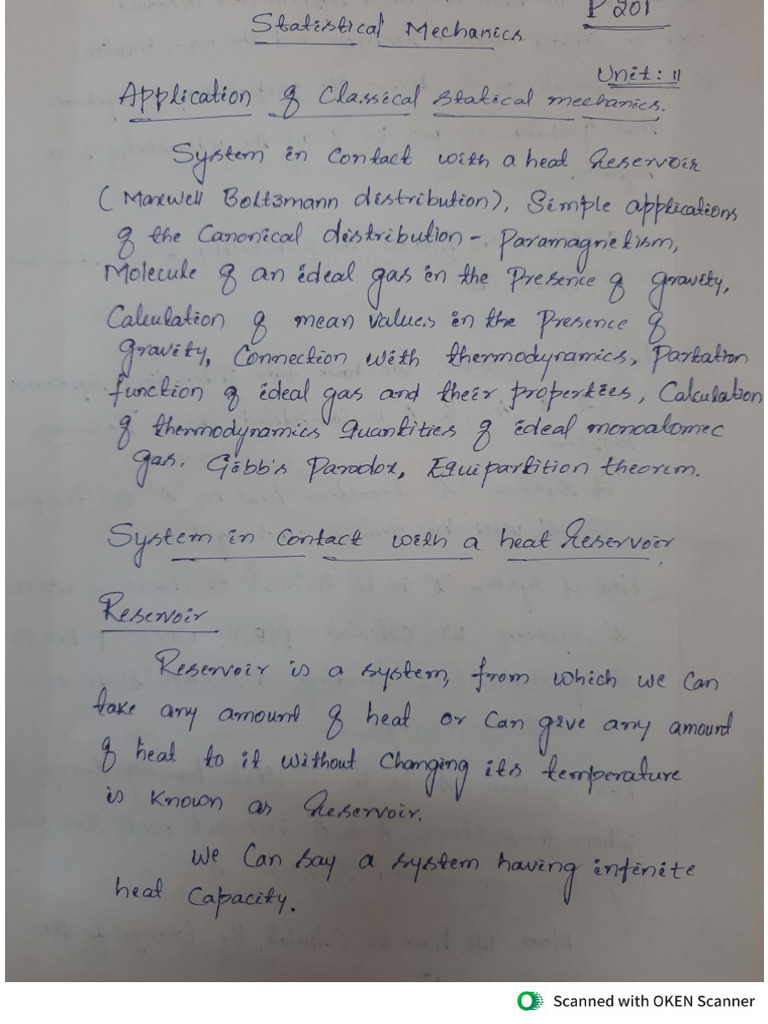 P 201
Statistical Mechanics
Unit: II
Application of Classical Statical mechanics.
System in Contact with a heat Reservoir
(Maxwell Boltzmann distribution), Simple applications
of the Canonical distribution - Paramagnetism,
Molecule of an ideal gas in the Presence of gravity,
Calculation of mean values in the Presence of
gravity, Connection with thermodynamics, Partation
function of ideal gas and their properties, Calculation
of thermodynamics Quantities of ideal monoatomic
gas. Gibb's Paradox, Equipartition theorem.
System in Contact with a heat Reservoir
Reservoir
Reservoir is a system, from which we can
take any amount of heat or can give any amount
of heat to it without changing its temperature
is known as Reservoir.
We can say a system having infinite
heat capacity.
Scanned with OKEN Scanner